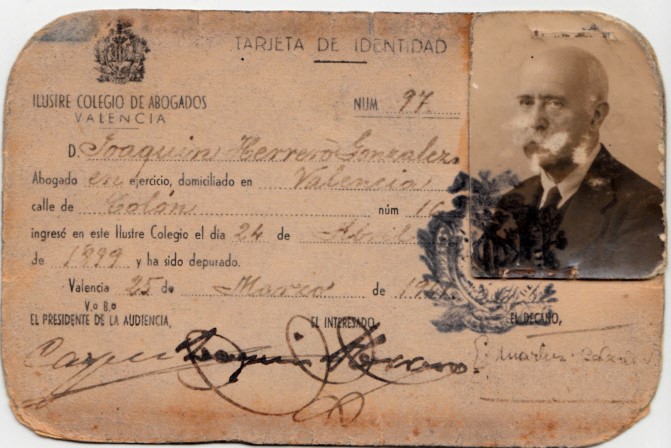 TARJETA DE IDENTIDAD
ILUSTRE COLEGIO DE ABOGADOS
VALENCIA
NUM 97
D. Joaquin Herrero Gonzalez
Abogado en ejercicio, domiciliado en Valencia
calle de Colón núm 10
ingresó en este Ilustre Colegio el día 24 de Abril
de 1899 y ha sido depurado.
Valencia 25 de Marzo de
V.º B.º
EL PRESIDENTE DE LA AUDIENCIA, EL INTERESADO, EL DECANO,
Joaquin Herrero